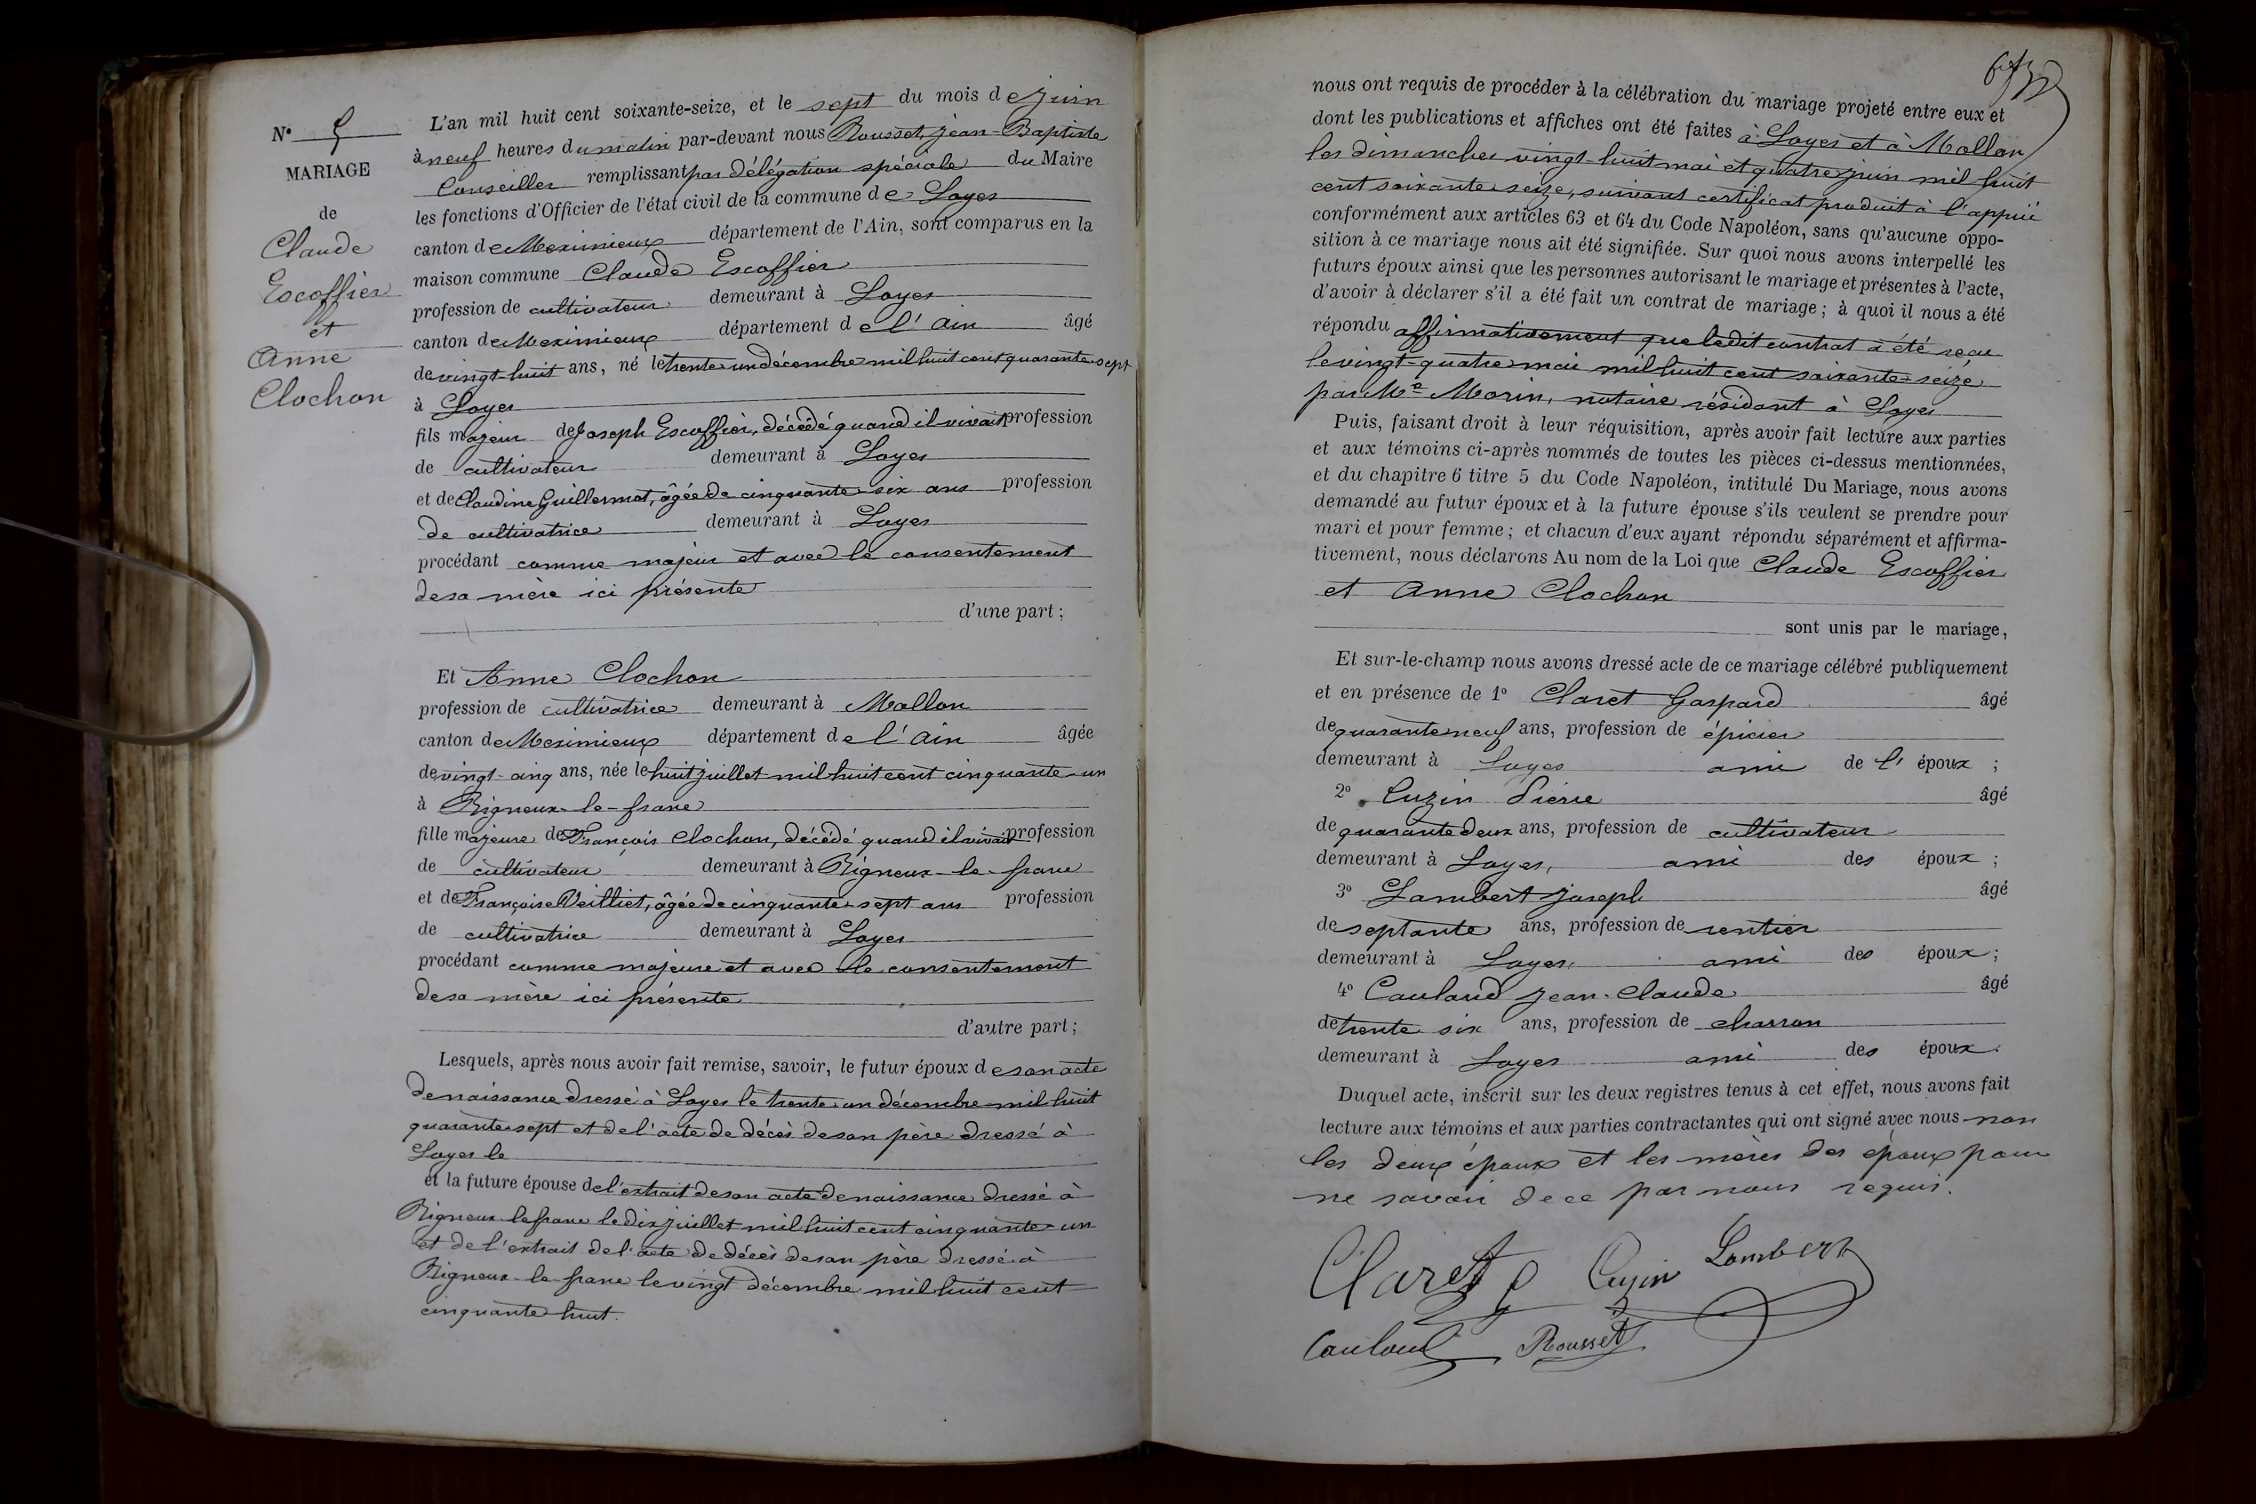 N° 5
MARIAGE
de
Claude
Escoffier
et
Anne
Clochon
L'an mil huit cent soixante-seize, et le sept du mois de juin
à neuf heures du matin par-devant nous Rousset, Jean-Baptiste
Conseiller remplissant par délégation spéciale du Maire
les fonctions d'Officier de l'état civil de la commune de Loyes
canton de Meximieux département de l'Ain, sont comparus en la
maison commune Claude Escoffier
profession de cultivateur demeurant à Loyes
canton de Meximieux département de l'Ain âgé
de vingt-huit ans, né le trente un décembre mil huit cent quarante sept
à Loyes
fils majeur de Joseph Escoffier, décédé quand il vivait profession
de cultivateur demeurant à Loyes
et de Claudine Guillermot, âgée de cinquante six ans profession
de cultivatrice demeurant à Loyes
procédant comme majeur et avec le consentement
de sa mère ici présente
d'une part;
Et Anne Clochon
profession de cultivatrice demeurant à Mollon
canton de Meximieux département de l'Ain âgée
de vingt-cinq ans, née le huit juillet mil huit cent cinquante-un
à Rigneux-le-franc
fille majeure de François Clochon, décédé quand il vivait profession
de cultivateur demeurant à Rigneux-le-franc
et de Françoise Veilliet, âgée de cinquante sept ans profession
de cultivatrice demeurant à Loyes
procédant comme majeure et avec le consentement
de sa mère ici présente
d'autre part;
Lesquels, après nous avoir fait remise, savoir, le futur époux de son acte
de naissance dressé à Loyes le trente un décembre mil huit
quarante sept et de l'acte de décès de son père dressé à
Loyes le
et la future épouse de l'extrait de son acte de naissance dressé à
Rigneux-le franc le dix juillet mil huit cent cinquante-un
et de l'extrait de l'acte de décès de son père dressé à
Rigneux-le-franc le vingt décembre mil huit cent
cinquante huit.
nous ont requis de procéder à la célébration du mariage projeté entre eux et
dont les publications et affiches ont été faites à Loyes et à Mollon
les dimanches vingt-huit mai et quatre juin mil huit
cent soixante seize, suivant certificat produit à l'appui
conformément aux articles 63 et 64 du Code Napoléon, sans qu'aucune oppo-
sition à ce mariage nous ait été signifiée. Sur quoi nous avons interpellé les
futurs époux ainsi que les personnes autorisant le mariage et présentes à l'acte,
d'avoir à déclarer s'il a été fait un contrat de mariage; à quoi il nous a été
répondu affirmativement que ledit contrat a été reçu
le vingt-quatre mai mil huit cent soixante-seize
par Me Morin, notaire résidant à Loyes
Puis, faisant droit à leur réquisition, après avoir fait lecture aux parties
et aux témoins ci-après nommés de toutes les pièces ci-dessus mentionnées,
et du chapitre 6 titre 5 du Code Napoléon, intitulé Du Mariage, nous avons
demandé au futur époux et à la future épouse s'ils veulent se prendre pour
mari et pour femme; et chacun d'eux ayant répondu séparément et affirma-
tivement, nous déclarons Au nom de la Loi que Claude Escoffier
et Anne Clochon
sont unis par le mariage,
Et sur-le-champ nous avons dressé acte de ce mariage célébré publiquement
et en présence de 1° Claret Gaspard âgé
de quarante neuf ans, profession de épicier
demeurant à Loyes ami de l'époux;
2° Cuzin Pierre âgé
de quarante deux ans, profession de cultivateur
demeurant à Loyes, ami des époux;
3° Lambert Joseph âgé
de septante ans, profession de rentier
demeurant à Loyes, ami des époux;
4° Cauland Jean-Claude âgé
de trente six ans, profession de charron
demeurant à Loyes ami des époux.
Duquel acte, inscrit sur les deux registres tenus à cet effet, nous avons fait
lecture aux témoins et aux parties contractantes qui ont signé avec nous non
les deux époux et les mères des époux pour
ne savoir de ce par nous requis.
Claret g Cuzin Lambert
Cauland Rousset